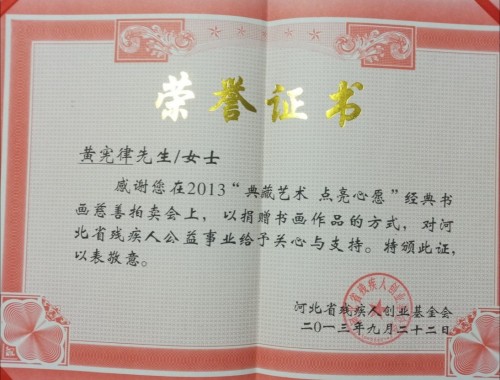 荣誉证书
黄宪律先生/女士
感谢您在2013“典藏艺术 点亮心愿”经典书
画慈善拍卖会上，以捐赠书画作品的方式，对河
北省残疾人公益事业给予关心与支持。特颁此证，
以表敬意。
河北省残疾人创业基金会
二〇一三年九月二十二日